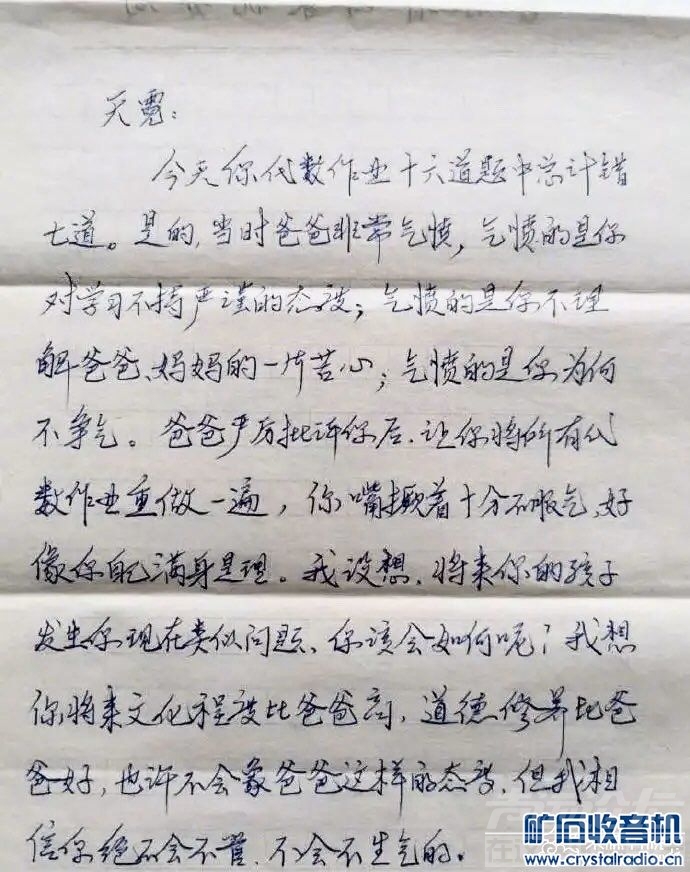 天霓：
今天你代数作业十六道题中总计错
七道。是的，当时爸爸非常气愤，气愤的是你
对学习不持严谨的态度；气愤的是你不理
解爸爸、妈妈的一片苦心；气愤的是你为何
不争气。爸爸严厉批评你后，让你将所有代
数作业重做一遍，你嘴撅着十分不服气，好
像你自己满身是理。我设想，将来你的孩子
发生你现在类似问题、你该会如何呢？我想
你将来文化程度比爸爸高，道德修养比爸
爸好，也许不会象爸爸这样的态度，但我相
信你绝不会不管、不会不生气的。
矿石收音机
www.crystalradio.cn